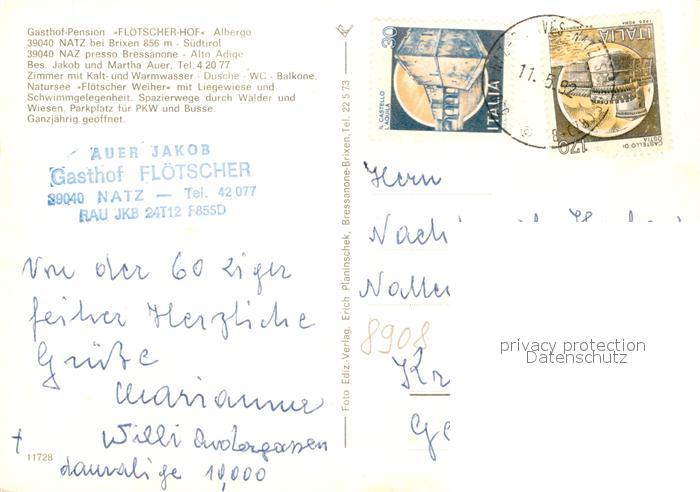 Gasthof-Pension »FLÖTSCHER-HOF« Albergo
39040 NATZ bei Brixen 856 m - Südtirol
39040 NAZ presso Bressanone - Alto Adige
Bes. Jakob und Martha Auer, Tel. 4 20 77
Zimmer mit Kalt- und Warmwasser - Dusche - WC - Balkone.
Natursee »Flötscher Weiher« mit Liegewiese und
Schwimmgelegenheit. Spazierwege durch Wälder und
Wiesen. Parkplatz für PKW und Busse.
Ganzjährig geöffnet.
AUER JAKOB
Gasthof FLÖTSCHER
39040 NATZ — Tel. 42 077
RAU JKB 24T12 F855D
Von der 60 ziger
feiher Herzliche
Grüße
Marianne
Willi
damalige 10,000
11728
Foto Ediz.-Verlag, Erich Planinschek, Bressanone-Brixen, Tel. 22 5 73
30
IL CASTELLO
L'AQUILA
ITALIA
11.5.82
ITALIA
170
CASTELLO DI
OSTIA
Herrn
8908
Kr
Ge
privacy protection
Datenschutz